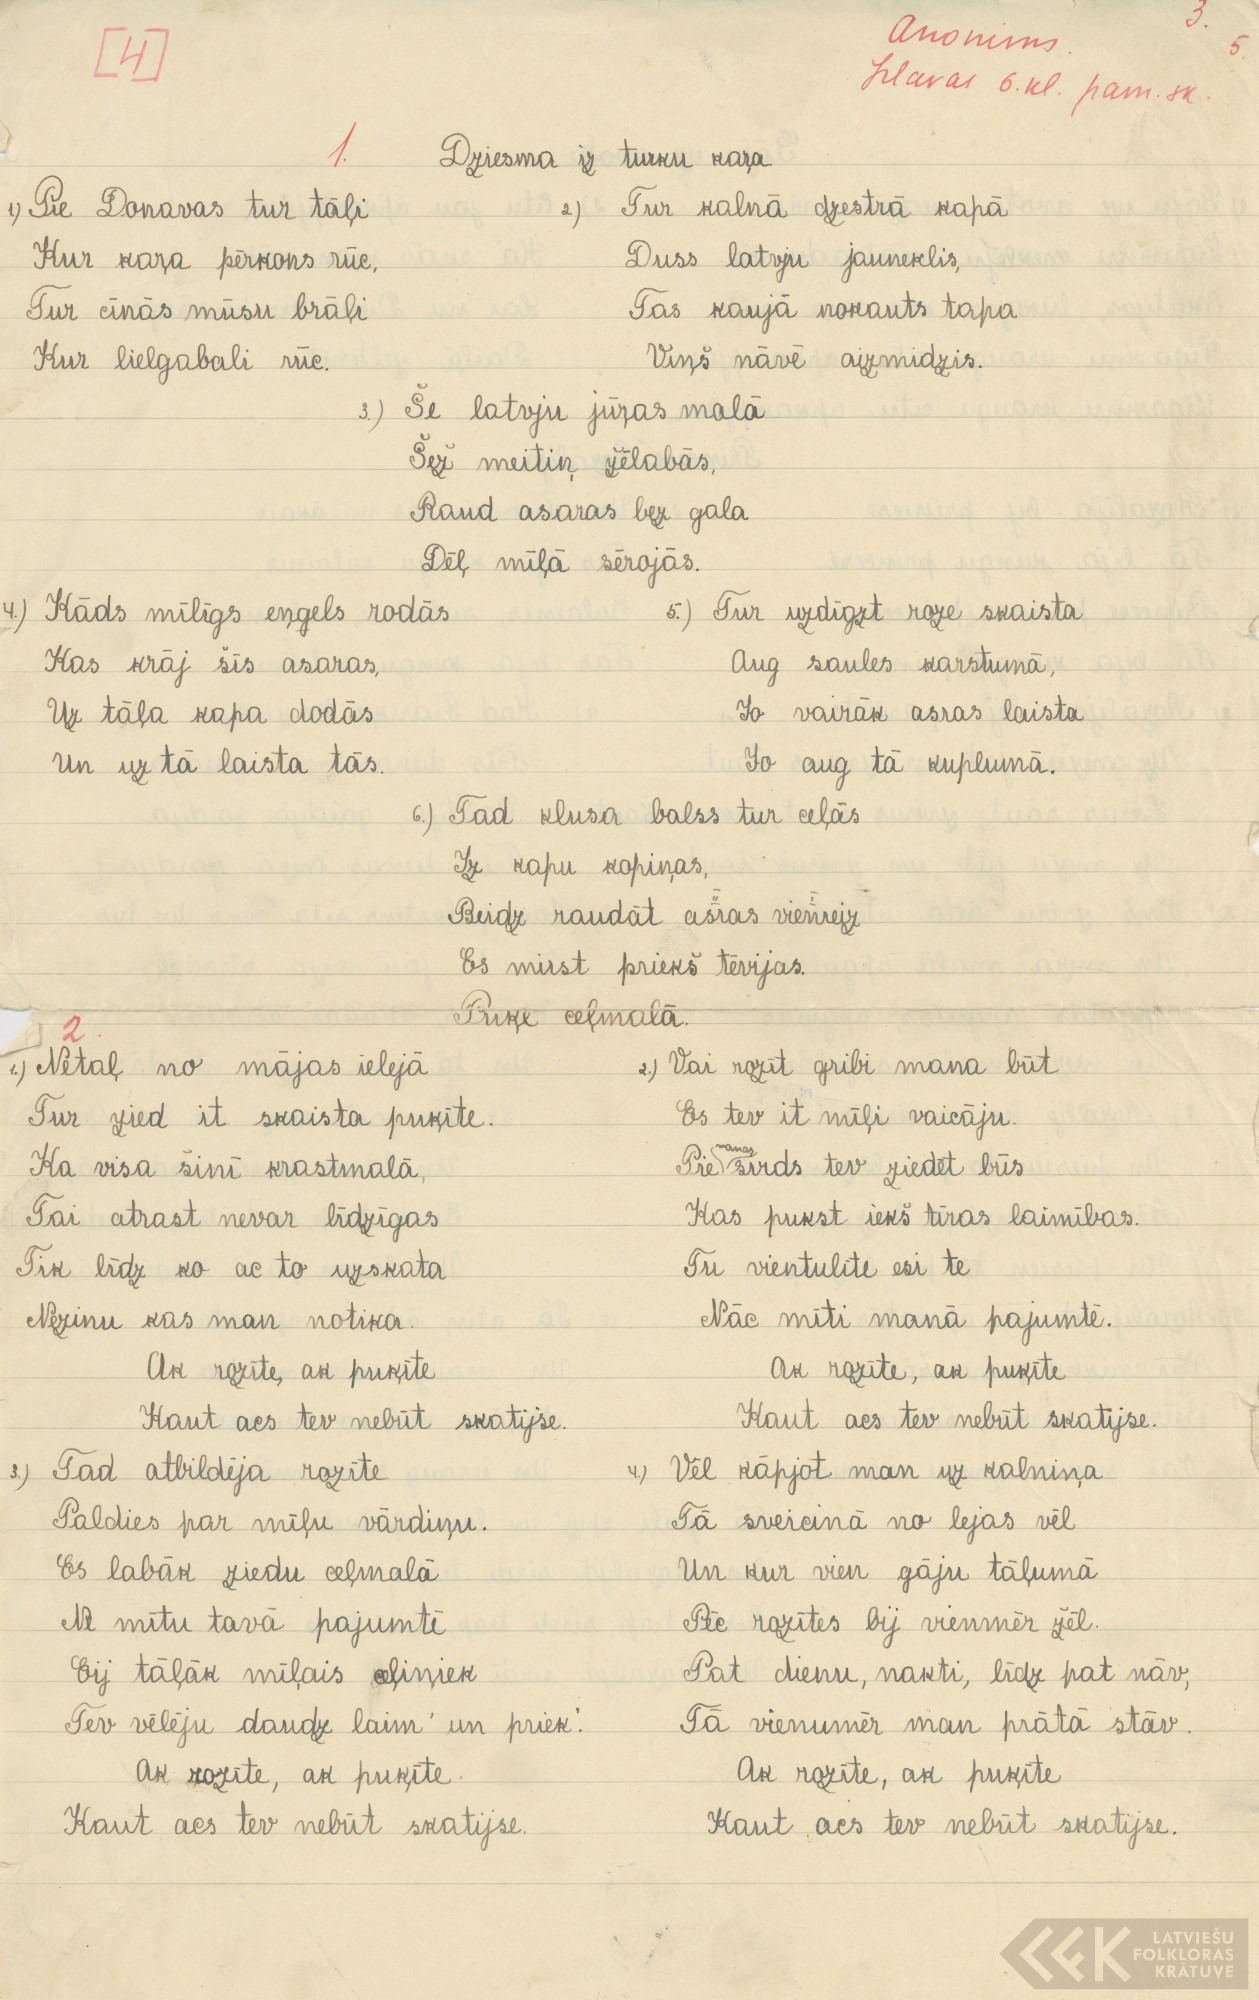 [4]
3.
5.
Anonims.
Jelavas 6. kl. pam. sk.
1. Dziesma iz turku kaŗa
1) Pie Donavas tur tāļi
Kur kaŗa pērkons rūc,
Tur cīnās mūsu brāļi
Kur lielgabali rūc.
2) Tur kalnā dzestrā kapā
Duss latvju jauneklis,
Tas kaujā nokauts tapa
Viņš nāvē aizmidzis.
3.) Še latvju jūŗas malā
Šez meitiņ žēlabās,
Raud asaras bez gala
Dēļ mīļā sērojās.
4.) Kāds mīlīgs eņgels rodās
Kas krāj šīs asaras,
Uz tāļa kapa dodās
Un uz tā laista tās.
5.) Tur uzdīgzt roze skaista
Aug saules karstumā,
Jo vairāk asras laista
Jo aug tā kuplumā.
6.) Tad klusa balss tur ceļās
Iz kapu kopiņas,
Beidz raudāt asras vienreiz
Es mirst priekš tēvijas.
2. Puķe ceļmalā.
1.) Netaļ no mājas ielejā
Tur zied it skaista puķīte.
Ka visa šinī krastmalā,
Tai atrast nevar līdzīgas
Tik līdz ko ac to uzskata
Nezinu kas man notika.
Ak rozīte, ak puķīte
Kaut acs tev nebūt skatijse.
2.) Vai rozīt gribi mana būt
Es tev it mīļi vaicāju.
Pie manas sirds tev ziedēt būs
Kas pukst iekš tīras laimības.
Tu vientulīte esi te
Nāc mīti manā pajumtē.
Ak rozīte, ak puķīte
Kaut acs tev nebūt skatijse.
3.) Tad atbildēja rozīte
Paldies par mīļu vārdiņu.
Es labāk ziedu ceļmalā
Ne mītu tavā pajumtē
Eij tāļāk mīļais ceļiņiek
Tev vēlēju daudz laim' un priek'.
Ak rozīte, ak puķīte.
Kaut acs tev nebūt skatijse.
4.) Vēl kāpjot man uz kalniņa
Tā sveicinā no lejas vēl
Un kur vien gāju tāļumā
Pēc rozītes bij vienmēr žēl.
Pat dienu, nakti, līdz pat nāv,
Tā vienumēr man prātā stāv.
Ak rozīte, ak puķīte
Kaut acs tev nebūt skatijse.
LATVIEŠU
FOLKLORAS
KRĀTUVE